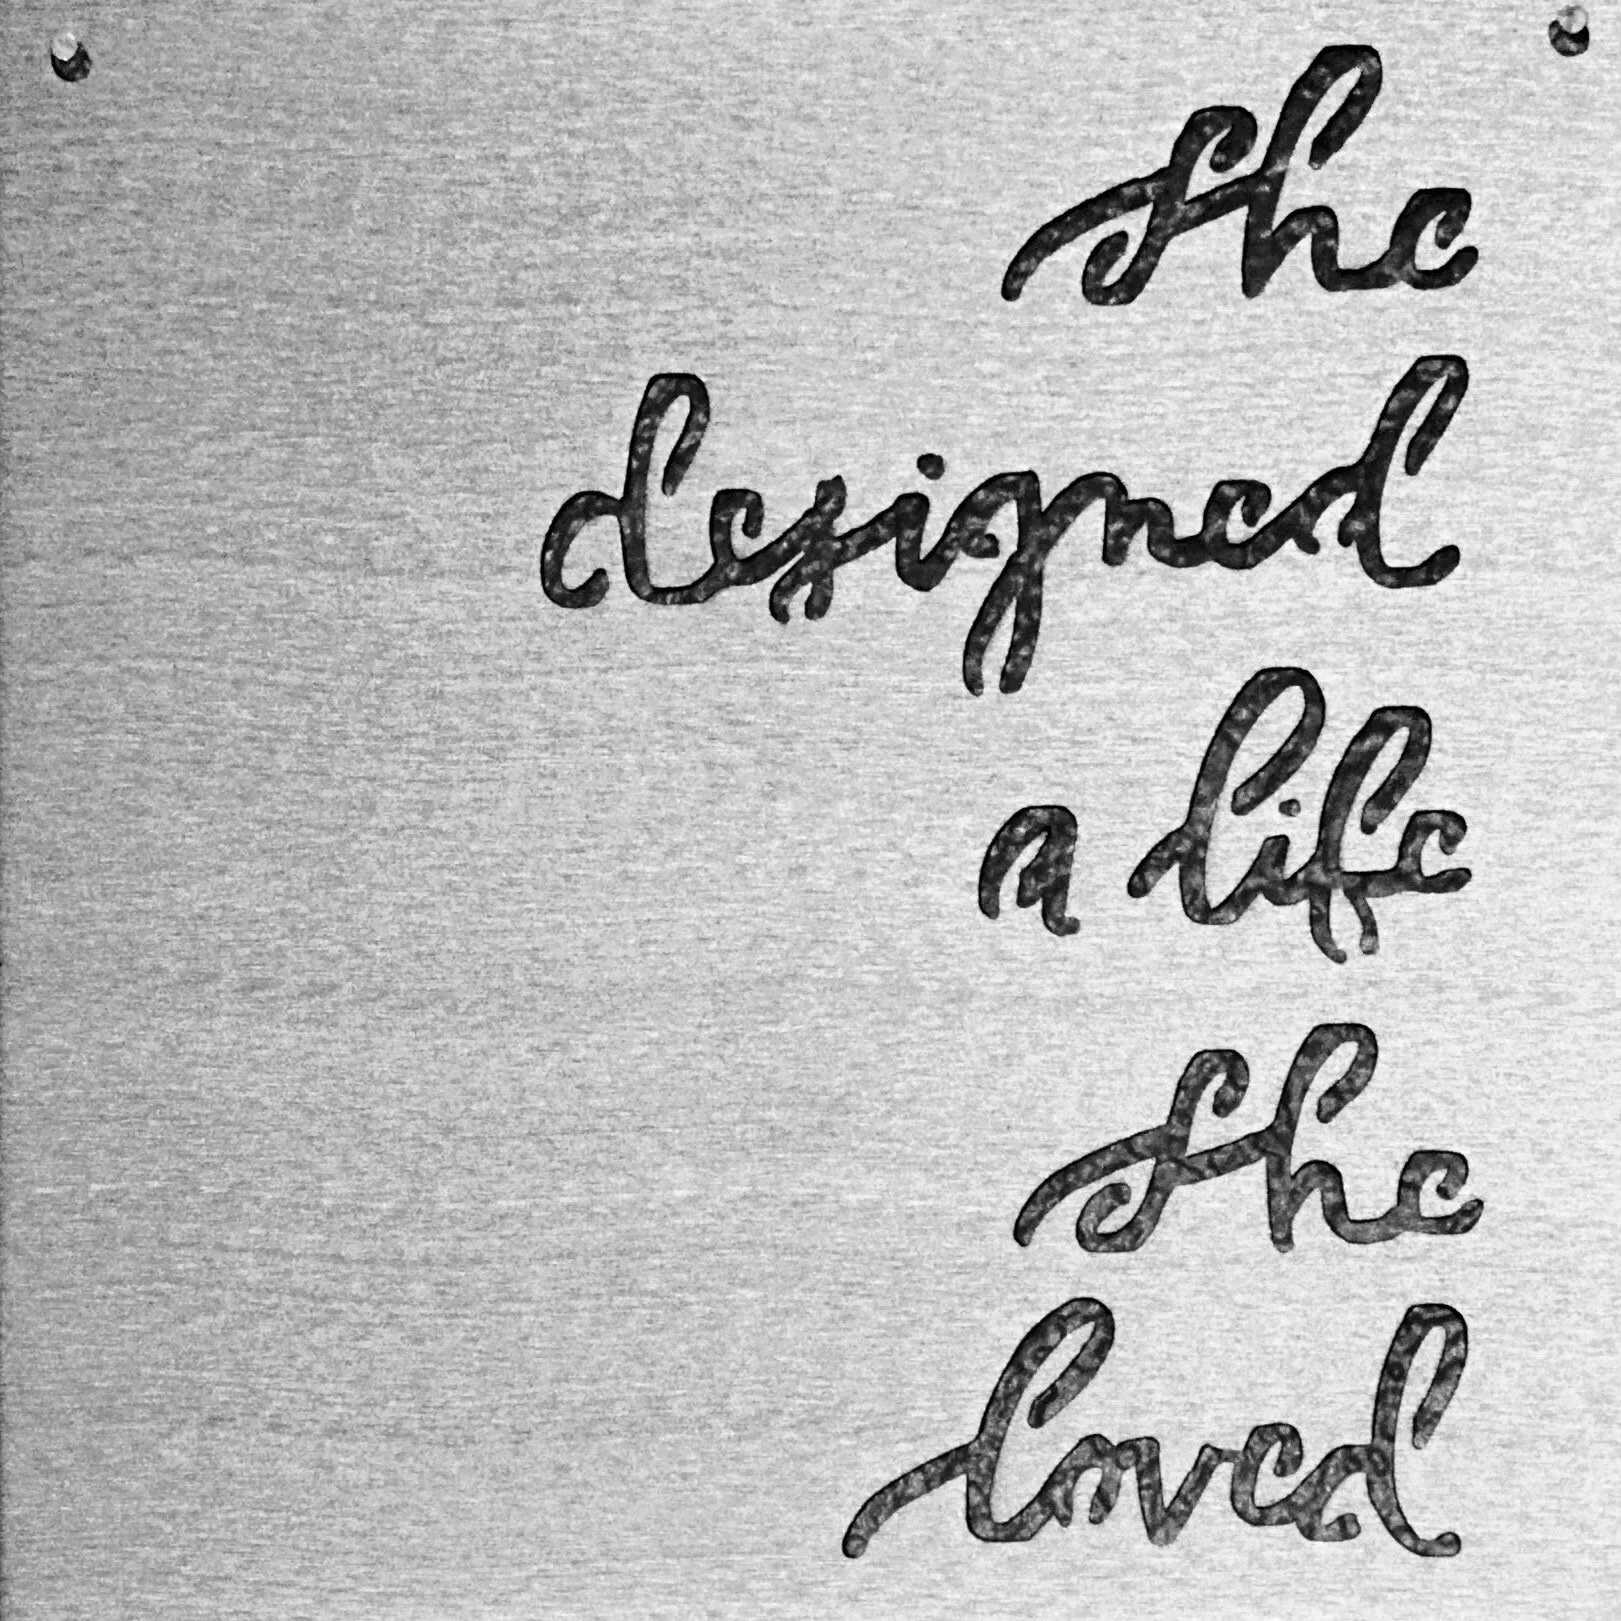 she
designed
a life
she
loved